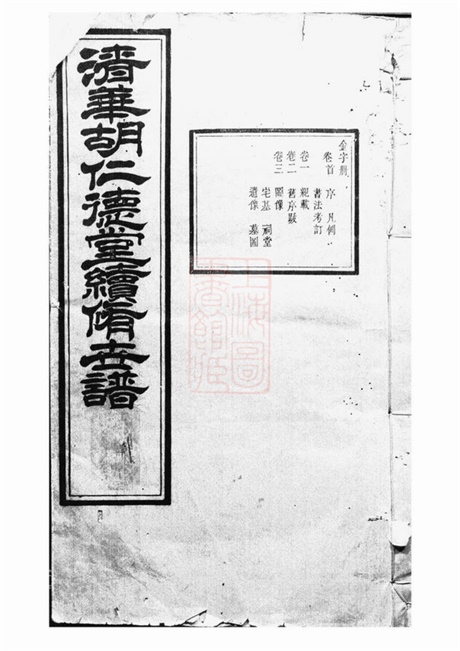 金字
卷首 序 凡例
書法考訂
卷一 載
卷二 舊序跋
卷三 圖像
宅基 祠堂
遺像 墓圖
清華胡仁德堂續脩世譜
上海圖
書館藏